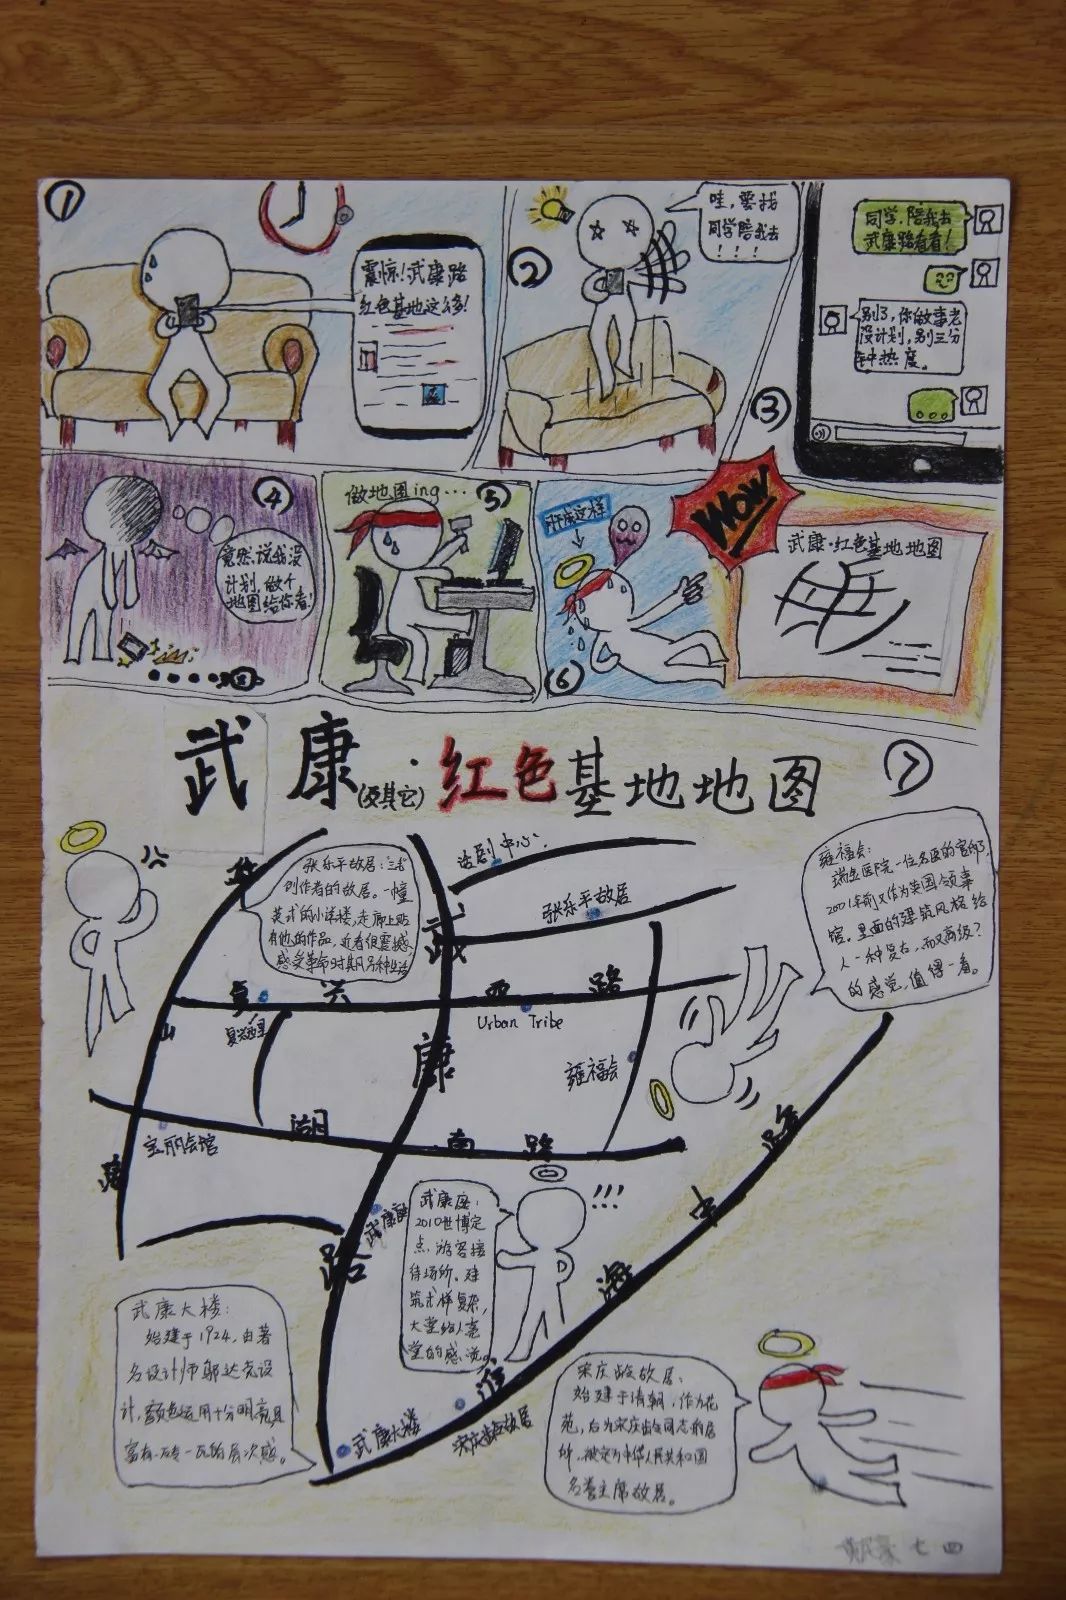 ①
震惊!武康路
红色基地这么多!
②
哇,要找
同学陪我去
!!!
③
同学,陪我去
武康路看看!
别了,你做事老
没计划,别三分
钟热度。
④
竟然说我没
计划,做个
地图给你看!
⑤
做地图ing…
⑥
所成这样
WOW
武康·红色基地地图
⑦
武康·(及其它)红色基地地图
张乐平故居:三毛
创作者的故居。一幢
英式的小洋楼,走廊上贴
有他的作品,近看很震撼,
感受革命时其风
话剧中心
张乐平故居
雍福会:
瑞金医院一位名医的官邸,
2001年前又作为英国领事
馆。里面的建筑风格给
人一种复古,而又高级?
的感觉,值得一看。
华
山
路
武
康
路
复兴西路
复兴西里
Urban Tribe
雍福会
湖南路
宝丽会馆
武康庭
武康庭:
2010世博定
点,游客接
待场所。建
筑式样复杂,
大堂给人亮
堂的感觉。
!!!
淮海中路
武康大楼:
始建于1924,由著
名设计师邬达克设
计,颜色运用十分明亮且
富有一砖一瓦的层次感。
武康大楼
宋庆龄故居
宋庆龄故居:
始建于清朝,作为花
苑,后为宋庆龄同志的居
所,被定为中华人民共和国
名誉主席故居。
七 四